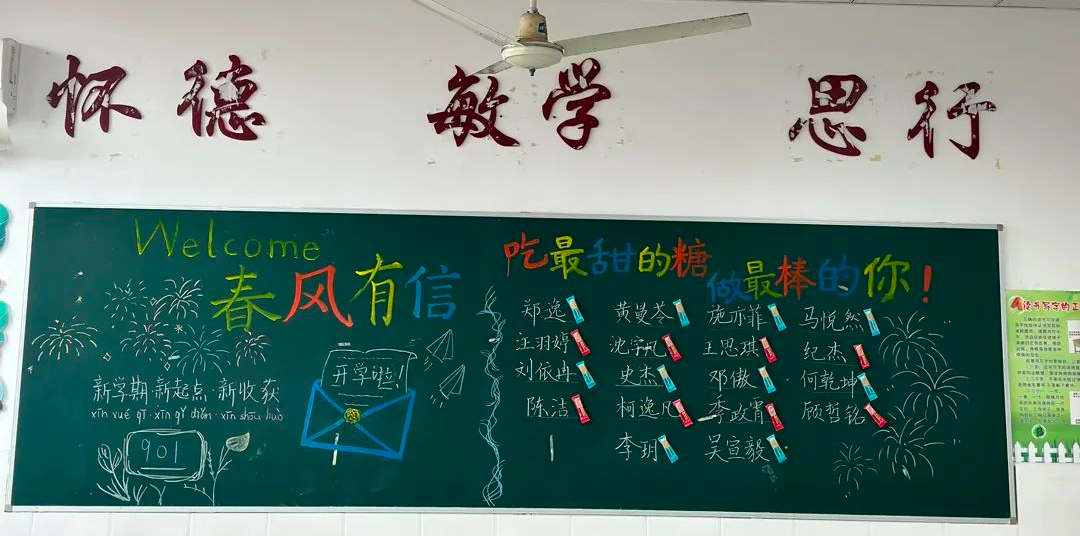 怀德 敏学 思行
Welcome
春风有信
新学期·新起点·新收获
xīn xué qī·xīn qǐ diǎn·xīn shōu huò
开学啦!
901
吃最甜的糖
做最棒的你!
郑逸 黄曼苓 施亦菲 马悦然
汪羽婷 沈宇凡 王思琪 纪杰
刘依冉 史杰 邓傲 何乾坤
陈洁 柯逸凡 李政霄 顾哲铭
李玥 吴宣毅
读书写字的正